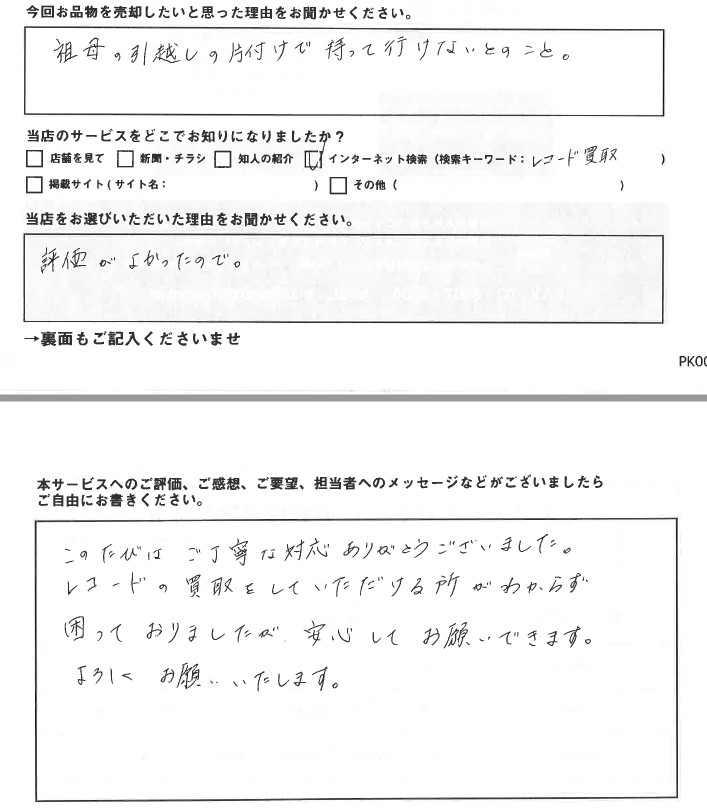 今回お品物を売却したいと思った理由をお聞かせください。
祖母の引越しの片付けで持って行けないとのこと。
当店のサービスをどこでお知りになりましたか？
□ 店舗を見て □ 新聞・チラシ □ 知人の紹介 ☑ インターネット検索（検索キーワード：レコード買取 ）
□ 掲載サイト（サイト名： ） □ その他（ ）
当店をお選びいただいた理由をお聞かせください。
評価がよかったので。
→裏面もご記入くださいませ
PK00
本サービスへのご評価、ご感想、ご要望、担当者へのメッセージなどがございましたら
ご自由にお書きください。
このたびはご丁寧な対応ありがとうございました。
レコードの買取をしていただける所がわからず
困っておりましたが、安心してお願いできます。
よろしくお願いいたします。